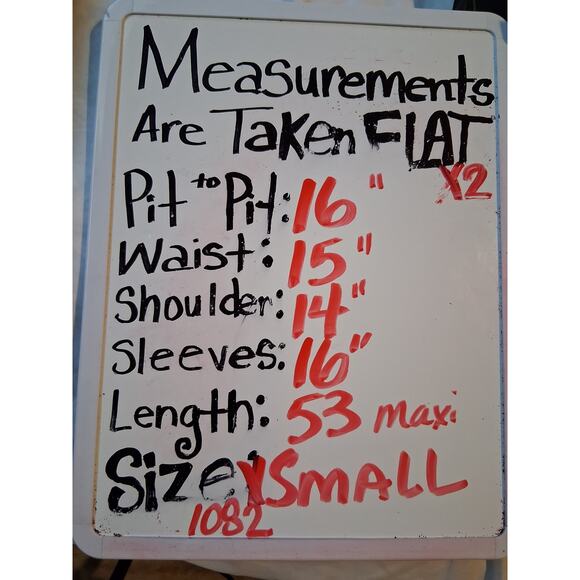 Measurements
Are Taken FLAT
X2
Pit to Pit: 16"
Waist: 15"
Shoulder: 14"
Sleeves: 16"
Length: 53 maxi
Size: XSMALL
1082